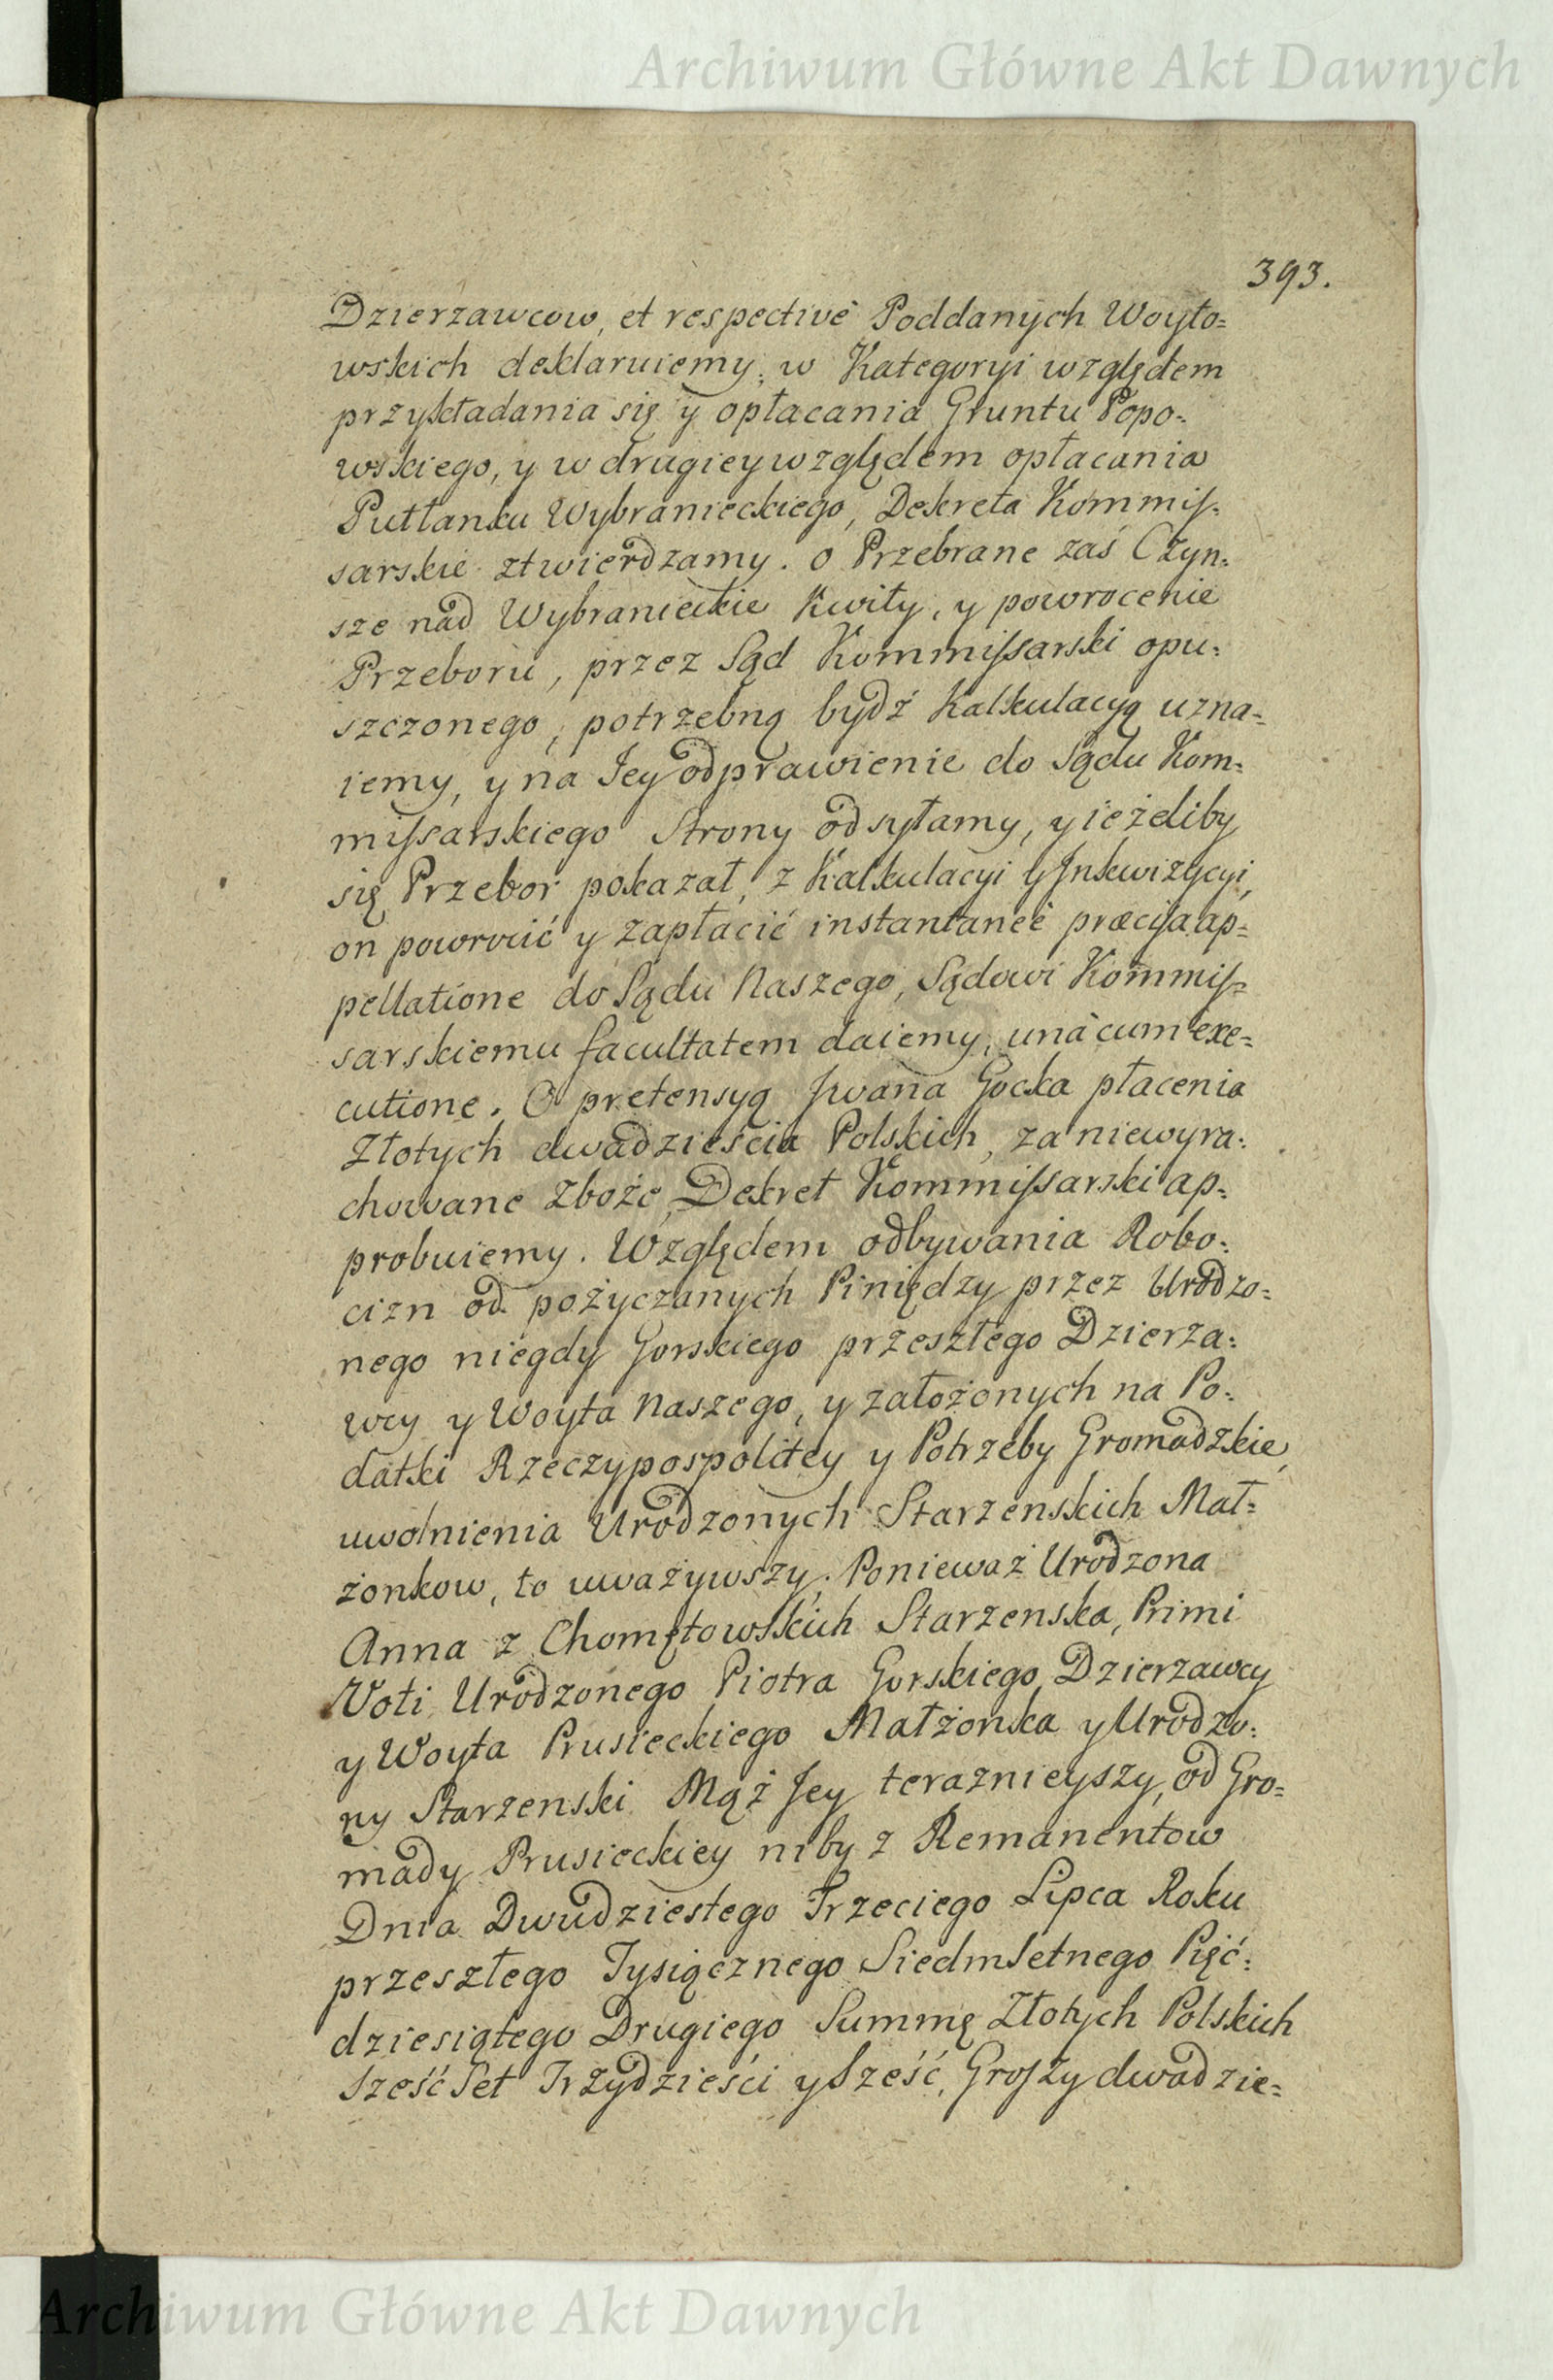 Archiwum Główne Akt Dawnych
393.
Dzierzawcow, et respectivè Poddanych Woyto=
wskich deklaruiemy; w Kategoryi względem
przykładania się y opłacania Gruntu Popo=
wskiego, y w drugiey względem opłacania
Putłanku Wybranieckiego, Dekreta Kommiſ=
sarskie ztwierdzamy. o Przebrane zaś Czyn=
sze nad Wybranieckie Kwity, y powrocenie
Przeboru, przez Sąd Kommiſsarski opu=
szczonego, potrzebną bydź Kalkulacyą uzna=
iemy, y na Jey odprawienie do Sądu Kom=
miſsarskiego Strony odsyłamy, y ieżeliby
się Przebor pokazał, z Kalkulacyi y Jnkwizycyi,
on powrocić y zapłacić instantaneè præcisa ap=
pellatione do Sądu Naszego, Sądowi Kommiſ=
sarskiemu facultatem daiemy, unà cum exe=
cutione. O pretensyą Jwana Gocka płacenia
Złotych dwadzieścia Polskich, za niewyra=
chowane Zboże, Dekret Kommiſsarski ap=
probuiemy. Względem odbywania Robo=
cizn od pożyczanych Piniędzy przez Urodzo=
nego niegdy Gorskiego przeszłego Dzierza=
wcy y Woyta Naszego, y założonych na Po=
datki Rzeczypospolitey y Potrzeby Gromadzkie,
uwolnienia Urodzonych Starzenskich Mał=
żonkow, to uważywszy: Ponieważ Urodzona
Anna z Chomętowskich Starzenska, Primi
Voti Urodzonego Piotra Gorskiego, Dzierzawcy
y Woyta Prusieckiego Małżonka y Urodzo=
ny Starzenski Mąż Jey teraznieyszy, od Gro=
mady Prusieckiey niby z Remanentow
Dnia Dwudziestego Trzeciego Lipca Roku
przeszłego Tysiącznego Siedmsetnego Pięć=
dziesiątego Drugiego Summę Złotych Polskich
Sześćset Trzydzieści y Sześć, Groſzy dwadzie=
Archiwum Główne Akt Dawnych